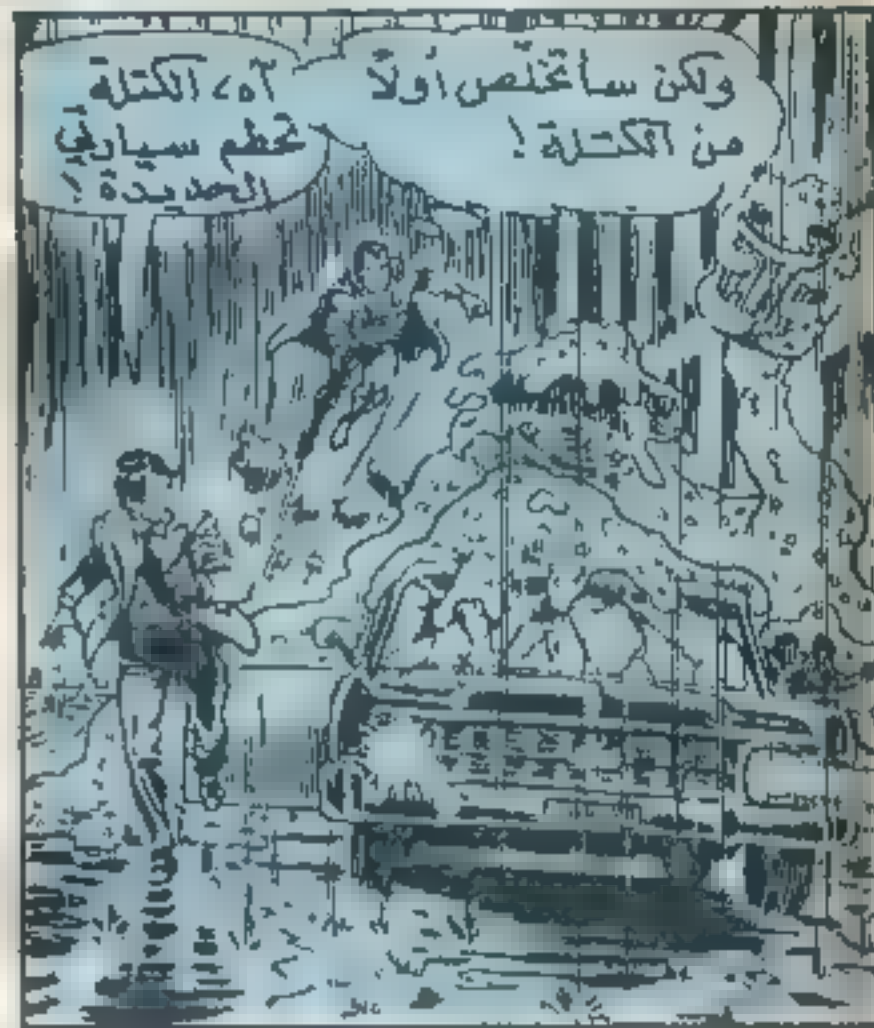 ولكن سأتخلّص أولًا
من الكتلة!
آه، الكتلة
تحطم سيارتي
الجديدة!